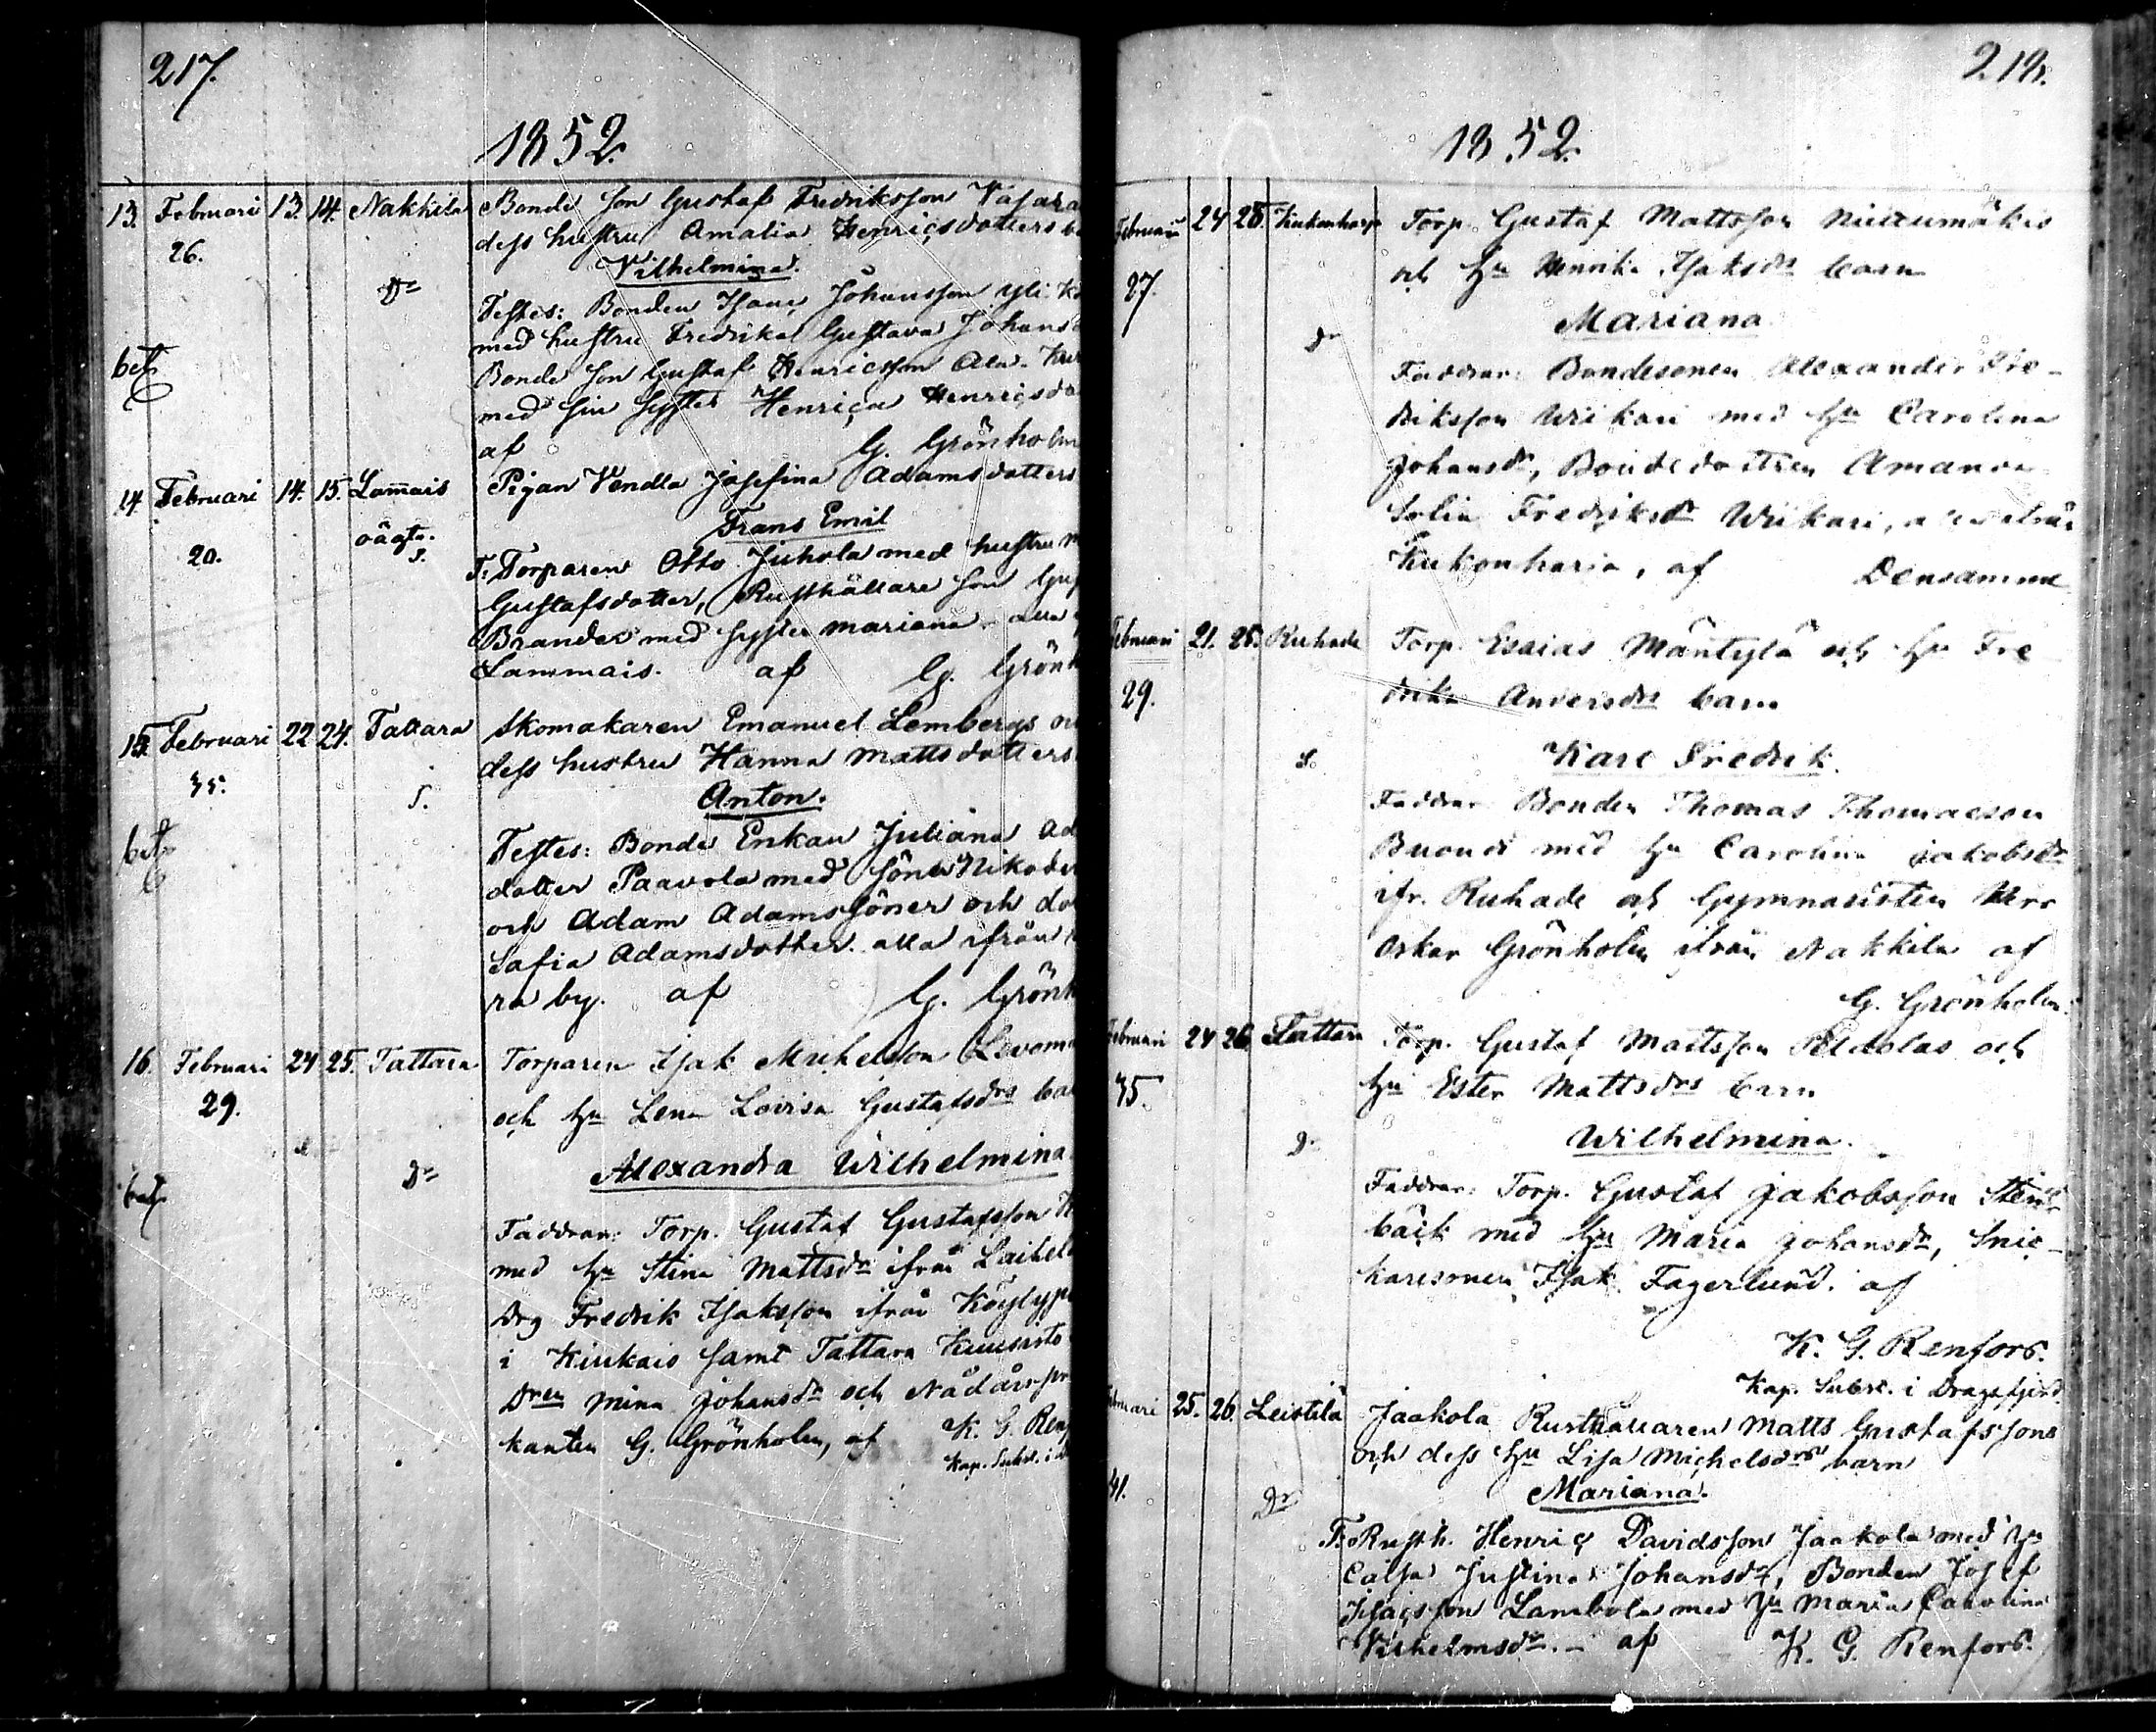 217.
1852.
13. Februari 13. 14. Nakkila Bonde son Gustaf Fredriksson
26. dess hustru Amalia Henricsdotters
Vilhelmina.
Dr
Testes: Bonden Isaac Johansson yli
med hustru Fredrika Gustava Johans
bet
Bonde son Gustaf Henricsson Ala-
med sin syster Henrica Henricsdo
af G. Grönholm
14. Februari 14. 15. Lam̄ais Pigan Vendla Josefina Adamsdotters
oägta. Frans Emil
20. s.
F: Torparen Otto Juhola med hustru
Gustafsdotter, Rusthållare son Gus
Brander med syster Mariana alla
Lammais. af G. Grönh
15. Februari 22 24. Tattara Skomakaren Emanuel Lembergs
dess hustru Hanna Mattsdotters
35. s. Anton.
Testes: Bonde Enkan Juliana Ad
bet
dotter Paavola med söner Nikode
och Adam Adamssöner och do
Sofia Adamsdotter. alla ifrån
ra by. af G. Grönh
16. Februari 24 25. Tattara Torparen Isak Michelsson
29. och hu Lena Lovisa Gustafsdrs ba
Dr Alexandra Wilhelmina
bet
Faddrar: Torp. Gustaf Gustafsson
med hu Stina Mattsdr ifrån
Drg Fredrik Isaksson ifrån
i Kiukais samt Tattara
Dren Mina Johansdr och Nådårspr
kanten G. Grönholm, af K. G. Ren
Kap. Subst. i
218.
1852.
Februari 24 25. Torp. Gustaf Mattsson
27. och hu Henrika Isaksdrs barn
Mariana
Dr
Faddrar: Bondesonen Alexander Fre-
driksson Wiikari med hu Carolina
Johansdr, Bondedottren Amanda
Fredriksdr Wiikari, alla ifrån
Kukonharja, af Densamme
Februari 21. 25. Ruhade Torp. Esaias Mäntylä och hu Fre
29. drika Andersdrs barn
s. Karl Fredrik.
Faddrar Bonden Thomas Thomasson
med hu Carolina Jakobsdr
ifr. Ruhade och Gymnasisten Herr
Oskar Grönholm ifrån Nakkila af
G. Grönholm.
Februari 24 26. Tattara Torp. Gustaf Mattsson och
35. hu Ester Mattsdrs barn
Dr Wilhelmina.
Faddrar: Torp. Gustaf Jakobsson Sten-
bäck med hu Maria Johansdr, Snic-
karesonen Isak Fagerlund. af
K. G. Renfors.
Kap. Subst. i Dragsfjerd
Februari 25. 26. Leistilä Jaakola Rusthållaren Matts Gustafssons
och dess hu Lisa Michelsdrs barn
41. Dr Mariana.
F: Rusth. Henric Davidsson Jaakola med hu
Caisa Justina Johansdr, Bonden Josef
Isacsson Lambola med hu Maria Carolina
Vilhelmsdr. - af K. G. Renfors.